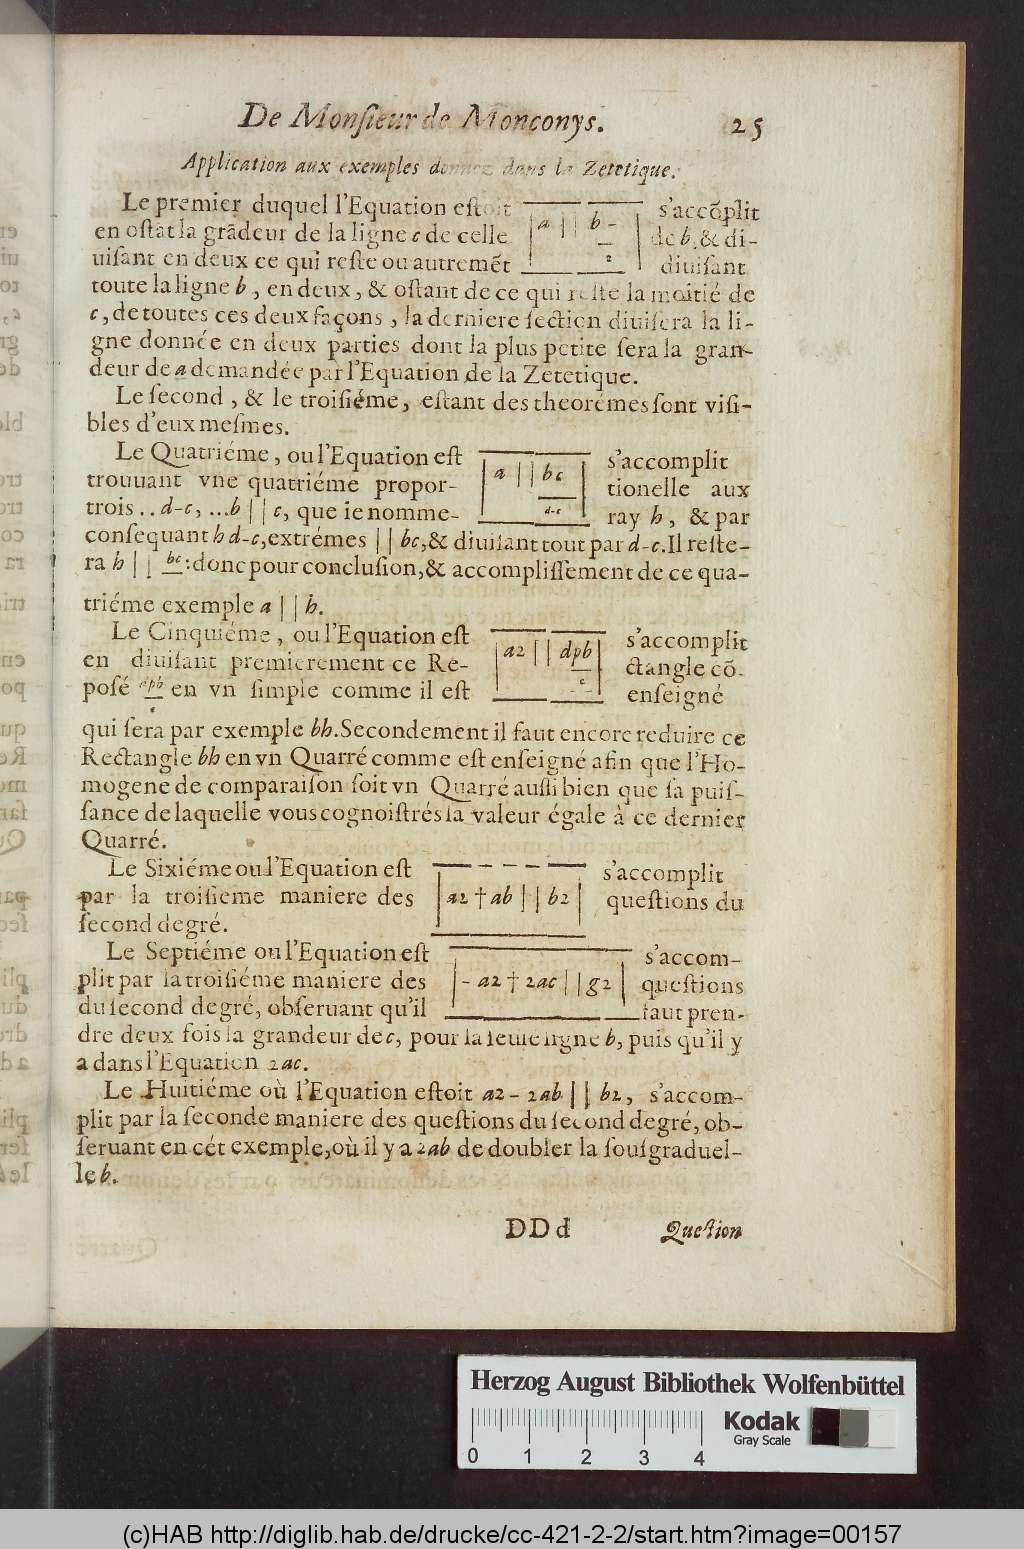 De Monſieur de Monconys. 25
Application aux exemples donnez dans la Zetetique.
Le premier duquel l'Equation eſtoit | a || b - | s'accõplit
en oſtãt la grãdeur de la ligne c de celle — de b. & di-
uiſant en deux ce qui reſte ou autremẽt 2 diuiſant
toute la ligne b, en deux, & oſtant de ce qui reſte la moitié de
c, de toutes ces deux façons, la derniere ſection diuiſera la li-
gne donnée en deux parties dont la plus petite ſera la gran-
deur de a demandée par l'Equation de la Zetetique.
Le ſecond, & le troiſiéme, eſtant des theorémes ſont viſi-
bles d'eux meſmes.
Le Quatriéme, ou l'Equation eſt | a || bc | s'accomplit
trouuant vne quatriéme propor- — tionelle aux
trois .. d-c, ...b || c, que ie nomme- d-c ray h, & par
conſequant h d-c, extrémes || bc, & diuiſant tout par d-c. Il reſte-
ra h || bc: donc pour concluſion, & accompliſſement de ce qua-
triéme exemple a || h.
Le Cinquiéme, ou l'Equation eſt | a2 || dpb | s'accomplit
en diuiſant premierement ce Re- — ctangle cõ-
poſé en vn ſimple comme il eſt c enſeigné
qui ſera par exemple bh. Secondement il faut encore reduire ce
Rectangle bh en vn Quarré comme eſt enſeigné afin que l'Ho-
mogene de comparaiſon ſoit vn Quarré auſſi bien que ſa puiſ-
ſance de laquelle vous cognoiſtrés la valeur égale à ce dernier
Quarré.
Le Sixiéme ou l'Equation eſt | a2 † ab || b2 | s'accomplit
par la troiſieme maniere des queſtions du
ſecond degré.
Le Septiéme ou l'Equation eſt | - a2 † 2ac || g2 | s'accom-
plit par la troiſiéme maniere des queſtions
du ſecond degré, obſeruant qu'il faut pren-
dre deux fois la grandeur de c, pour la ſeule ligne b, puis qu'il y
a dans l'Equation 2ac.
Le Huitiéme où l'Equation eſtoit a2 - 2ab || b2, s'accom-
plit par la ſeconde maniere des queſtions du ſecond degré, ob-
ſeruant en cét exemple, où il y a 2ab de doubler la ſouſgraduel-
le b.
DDd Queſtion
Herzog August Bibliothek Wolfenbüttel
0 1 2 3 4 Kodak
Gray Scale
(c)HAB http://diglib.hab.de/drucke/cc-421-2-2/start.htm?image=00157